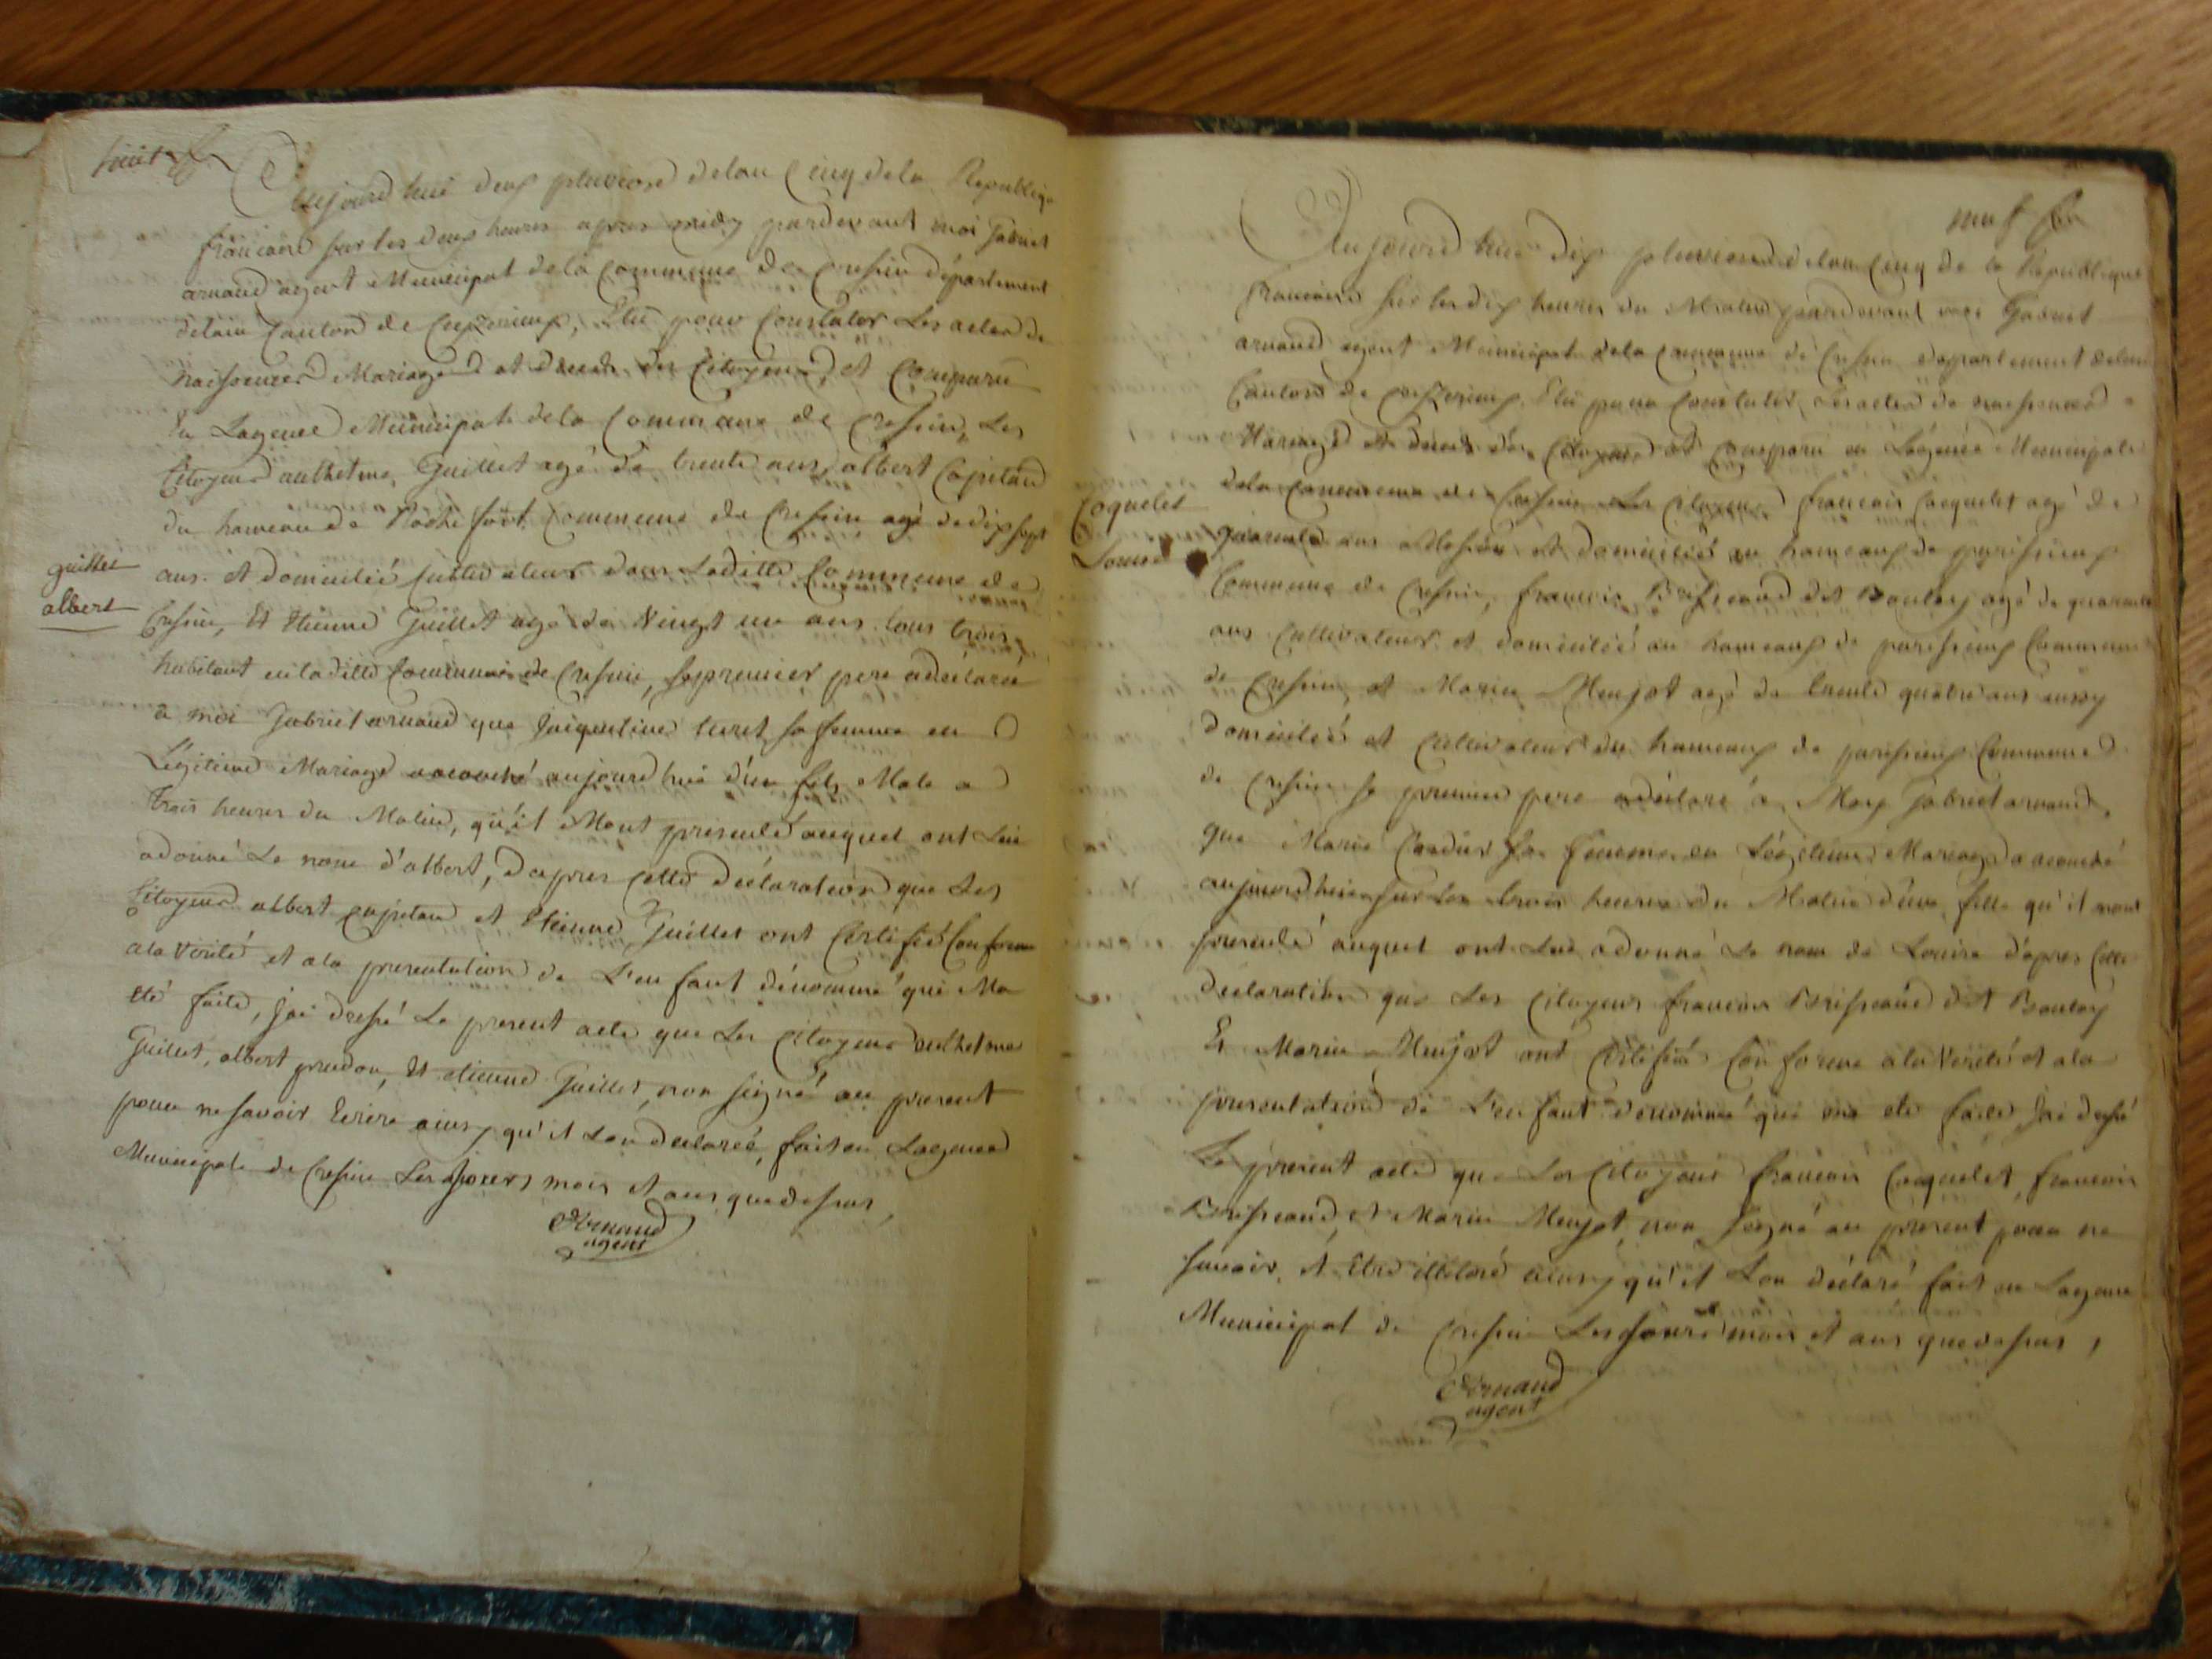 huit
Aujourd huè deux pluviose delan Cinq dela Republiqe
francaise sur les deux heures apres midy pardevant moi Gabriel
arnaud agent Municipal dela Commune de Cressin département
delain Canton de Ceyzerieux, Elu pour Constater Les actes de
naissances Mariages et deces des Citoyens, et Comparu
En Lagence Municipale dela Commune de Cressin, Les
Citoyens anthelme Guillet agé de trente ans, albert Capitan
du hameau de Rochefort Commune de Cressin agé de dix sept
ans. et domicilié Cultivateur dans Laditte Commune de
Cressin, Et Etienne Guillet agé de Vingt un ans. tous trois
habitant en laditte Commune de Cressin, Le premier pere a déclaré
a moi Gabriel arnaud que sa femme en
Légitime Mariage a acouché aujourdhuè d'un fils Male a
Trois heures du Matin, qu'il Mont presenté auquel ont Lui
adonné Le nom d'albert, d'apres cette déclaration que Les
Citoyens albert Capitan et Etienne Guillet ont Certifié Conforme
ala Vérité et ala presentation de L'enfant dénommé qui Ma
été faite, J'ai dressé Le present acte que Les Citoyens anthelme
Guillet, albert, Et etienne Guillet, non signé au present
pour ne savoir Ecrire ainsy qu'il Lon declaréé, fait en Lagence
Municipale de Cressin Les jours mois et ans que dessus,
Arnaud
agent
guillet
albert
neuf
Aujourd huè dix pluviose delan Cinq de la Republique
francaise sur les dix heures du Matin pardevant moi Gabriel
arnaud agent Municipal dela Commune de Cressin departement delain
Canton de Ceyzerieux, Elu pour Constater Les actes de naissances
Mariage et deces des Citoyens et Comparu en Lagence Municipale
dela Commune de Cressin Les Citoyens francois Coquelet agé de
quarante ans et domicilié au hameaux de parissieux
Commune de Cressin, francois Brissaud dit Boulay agé de quarante
ans Cultivateur et domicilié au hameaux de parissieux Commune
de Cressin, et Marin Meujot agé de trente quatre ans aussy
domicilié et Cultivateur du hameaux de parissieux Commune
de Cressin Le premier pere a déclaré a Moy Gabriel arnaud,
que Marie sa femme en Légitime Mariage a acouché
aujourdhuè sur Les trois heures du Matin d'une fille qu'il mont
presenté auquel ont Lui adonné Le nom de Louise d'apres Cette
declaration que Les Citoyens francois Brissaud dit Boulay
Et Marin Meujot ont Certifié Conforme ala Verité et ala
presentation de L'enfant denommé qui ma eté faite J'ai dressé
Le present acte que Les Citoyens francois Coquelet, francois
Brissaud, et Marin Meujot, non signé au present pour ne
savoir, et Etre illitéré ainsy qu'il Lon déclaré fait en Lagence
Municipal de Cressin Les jours mois et ans que dessus,
Arnaud
agent
Coquelet
Louise